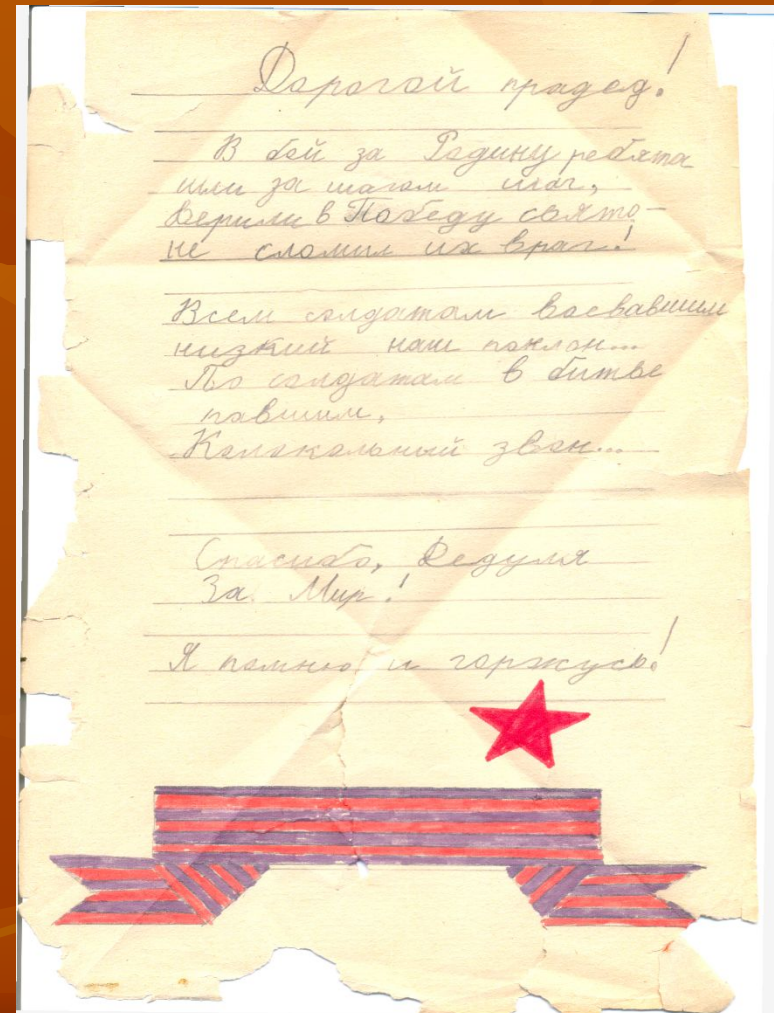 Дорогой прадед!
В бой за Родину ребята
шли за шагом шаг,
Верили в Победу свято –
не сломил их враг!
Всем солдатам воевавшим
низкий наш поклон...
По солдатам в битве
павшим,
Колокольный звон...
Спасибо, Дедуля
За Мир!
Я помню и горжусь!